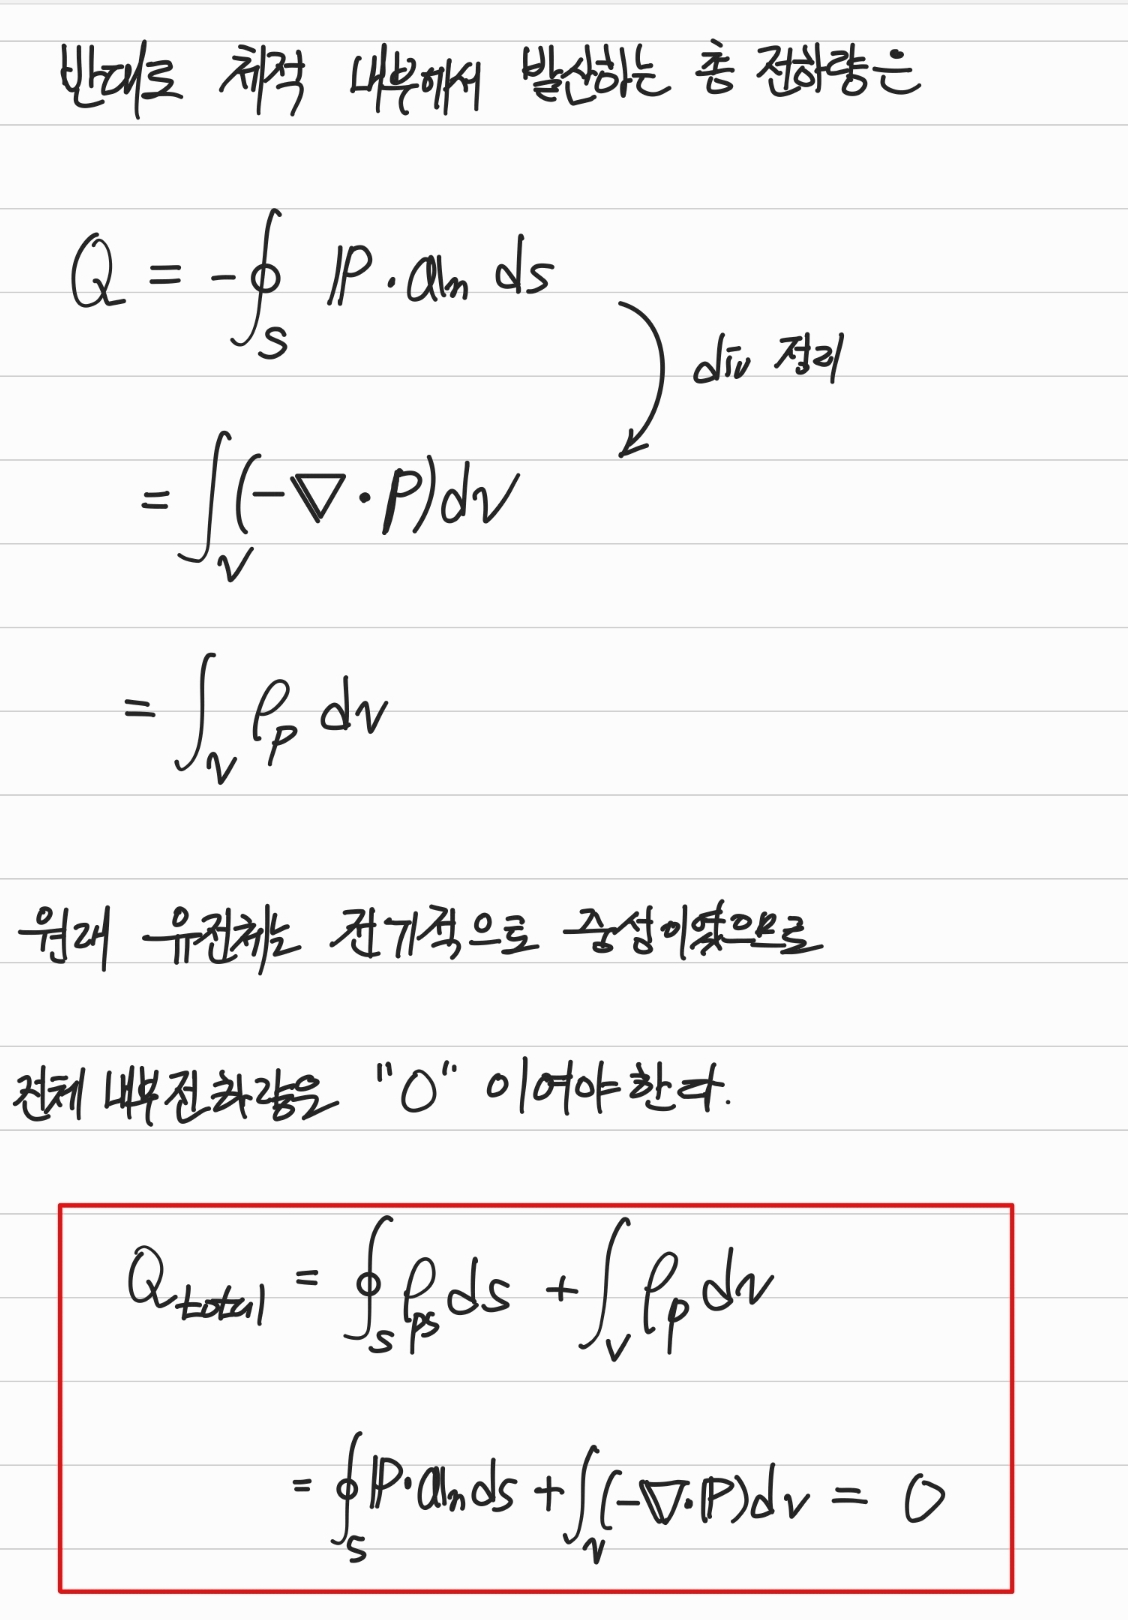 반대로 체적 내부에서 발산하는 총 전하량은
Q = -∮_S ℙ · 𝕒n ds
div 정리
= ∫_V (-∇ · ℙ) dv
= ∫_V ρ_p dv
원래 유전체는 전기적으로 중성이였으므로
전체 내부전하량은 "0" 이여야 한다.
Q_total = ∮_S ρ_ps ds + ∫_V ρ_p dv
= ∮_S ℙ · 𝕒n ds + ∫_V (-∇ · ℙ) dv = 0